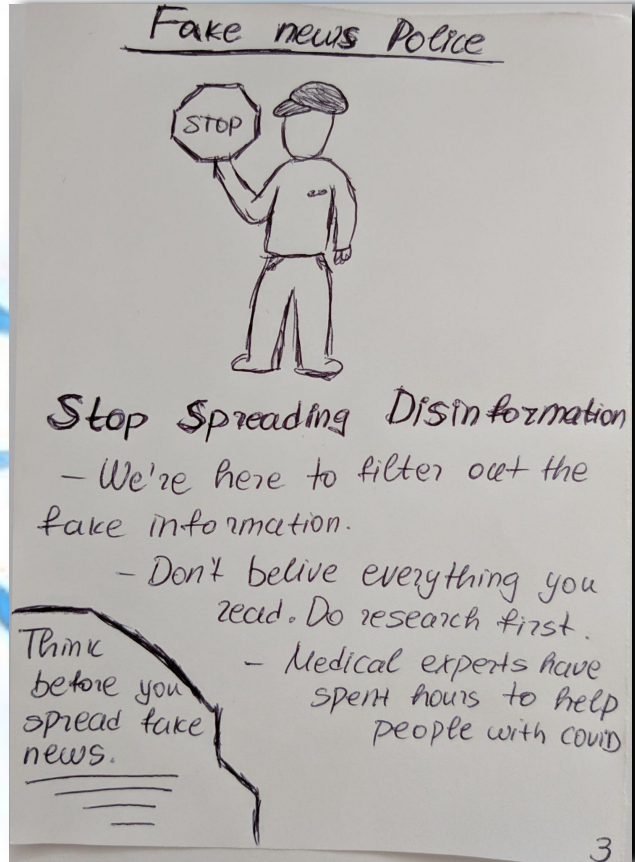 Fake news Police
STOP
Stop Spreading Disinformation
- We're here to filter out the
fake information.
- Don't belive everything you
read. Do research first.
- Medical experts have
spent hours to help
people with covid
Think
before you
spread fake
news.
3